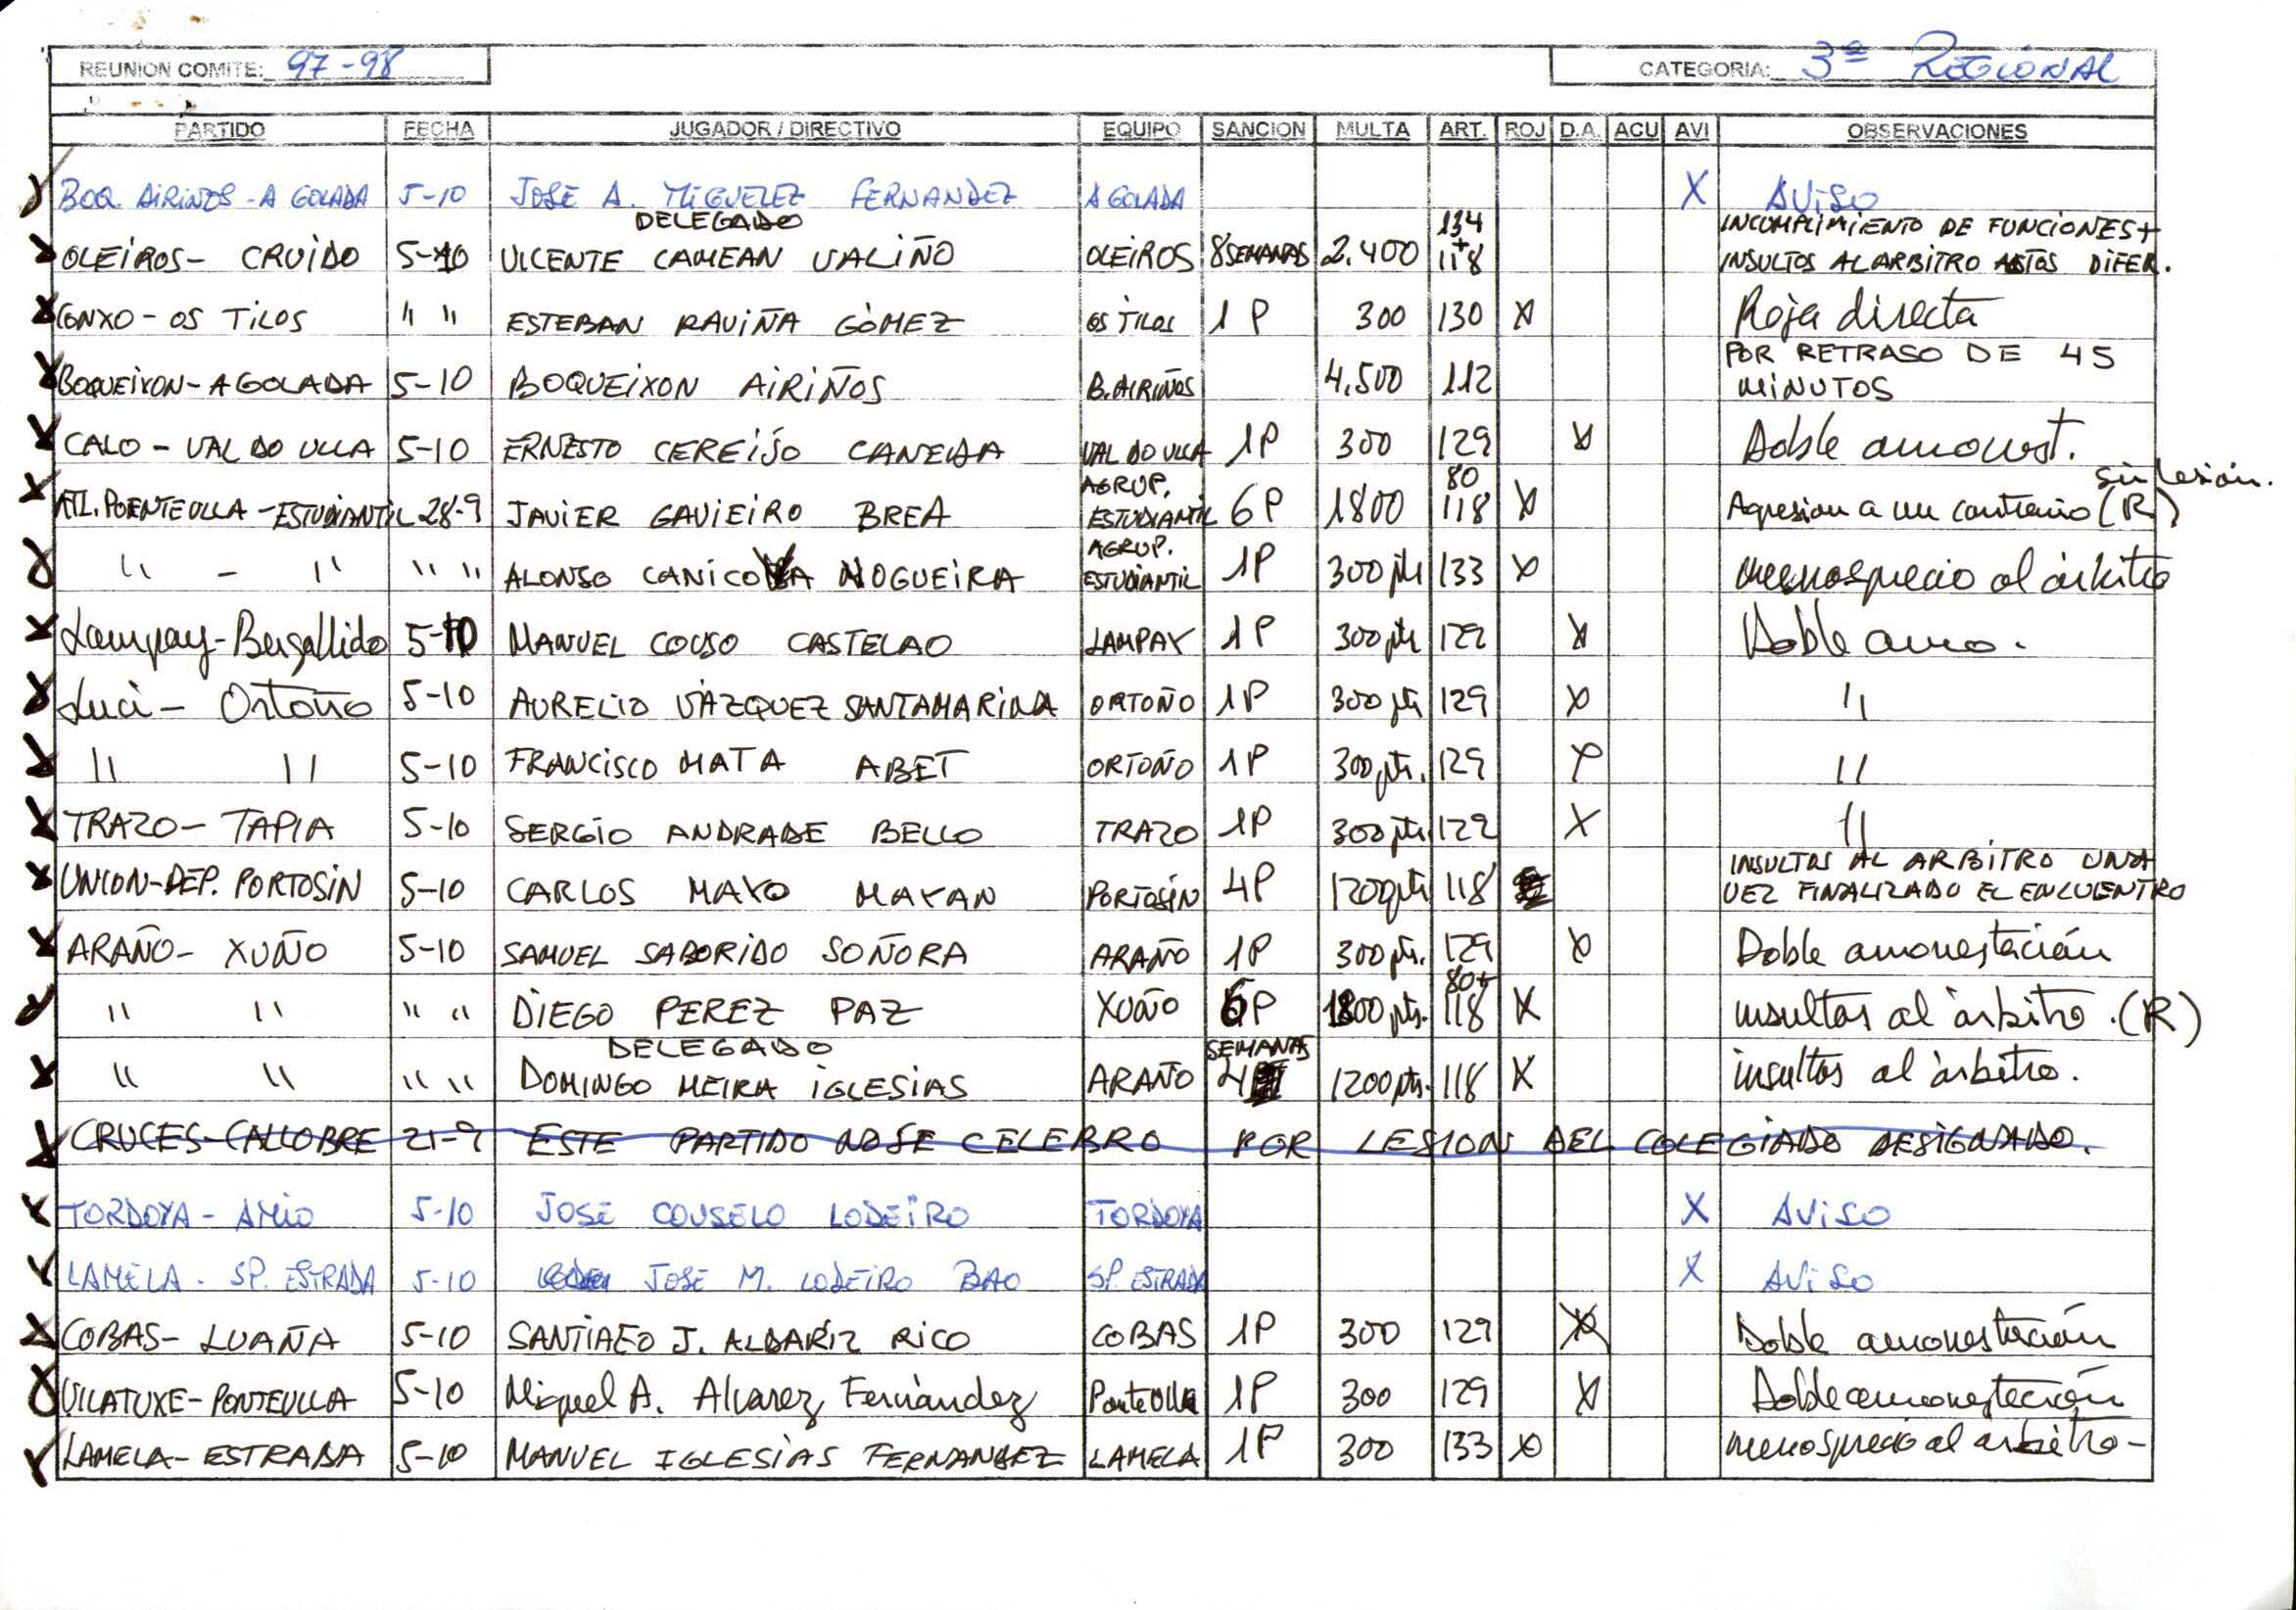 REUNION COMITE: 97-98 CATEGORIA: 3ª REGIONAL
PARTIDO FECHA JUGADOR / DIRECTIVO EQUIPO SANCION MULTA ART. ROJ D.A. ACU AVI OBSERVACIONES
BOQ. AIRIÑOS - AGOLADA 5-10 JOSE A. MIGUELEZ FERNANDEZ AGOLADA X AVISO
DELEGADO 134 INCUMPLIMIENTO DE FUNCIONES+
OLEIROS - CRUIDO 5-10 VICENTE CAMEAN VALIÑO OLEIROS 8 SEMANAS 2.400 + 118 INSULTOS AL ARBITRO DIFER.
CONXO - OS TILOS " " ESTEBAN RAVIÑA GÓMEZ OS TILOS 1P 300 130 X Roja directa
POR RETRASO DE 45
BOQUEIXON - AGOLADA 5-10 BOQUEIXON AIRIÑOS B. AIRIÑOS 4.500 112 MINUTOS
CALO - VAL DO ULLA 5-10 ERNESTO CEREIJO CANEDA VAL DO ULLA 1P 300 129 X Doble amonest.
AGRUP. 80 sin lesión.
ATL. POENTEULLA - ESTUDIANTIL 28-9 JAVIER GAVIEIRO BREA ESTUDIANTIL 6P 1800 118 X Agresion a un contrario (R)
AGRUP.
" - " " " ALONSO NOGUEIRA ESTUDIANTIL 1P 300 pts 133 X menosprecio al árbitro
Lampay - Bergallido 5-10 MANUEL COUSO CASTELAO LAMPAY 1P 300 pts 129 X Doble amo.
Luci - Ortoño 5-10 AURELIO VÁZQUEZ SANTAMARINA ORTOÑO 1P 300 pts 129 X "
" " 5-10 FRANCISCO MATA ABET ORTOÑO 1P 300 pts. 129 X "
TRAZO - TAPIA 5-10 SERGIO ANDRADE BELLO TRAZO 1P 300 pts 129 X "
INSULTOS AL ARBITRO UNA
UNION - DEP. PORTOSIN 5-10 CARLOS MAYO MAYAN PORTOSIN 4P 1200 pts 118 VEZ FINALIZADO EL ENCUENTRO
ARAÑO - XUÑO 5-10 SAMUEL SABORIDO SOÑORA ARAÑO 1P 300 pts. 129 X Doble amonestación
80+
" " " " DIEGO PEREZ PAZ XUÑO 6P 1800 pts. 118 X insultos al árbitro. (R)
DELEGADO SEMANAS
" " " " DOMINGO MEIRA IGLESIAS ARAÑO 4 1200 pts. 118 X insultos al árbitro.
CRUCES - CALLOBRE 21-9 ESTE PARTIDO NO SE CELEBRO POR LESION DEL COLEGIADO DESIGNADO.
TORDOYA - AMIO 5-10 JOSE COUSELO LODEIRO TORDOYA X AVISO
LAMELA - SP. ESTRADA 5-10 JOSE M. LODEIRO BAO SP. ESTRADA X AVISO
COBAS - LUAÑA 5-10 SANTIAGO J. ALBARIZ RICO COBAS 1P 300 129 X Doble amonestación
VILATUXE - PONTEULLA 5-10 Miguel A. Alvarez Fernández PonteUlla 1P 300 129 X Doble amonestación
LAMELA - ESTRADA 5-10 MANUEL IGLESIAS FERNANDEZ LAMELA 1P 300 133 X menosprecio al arbitro -